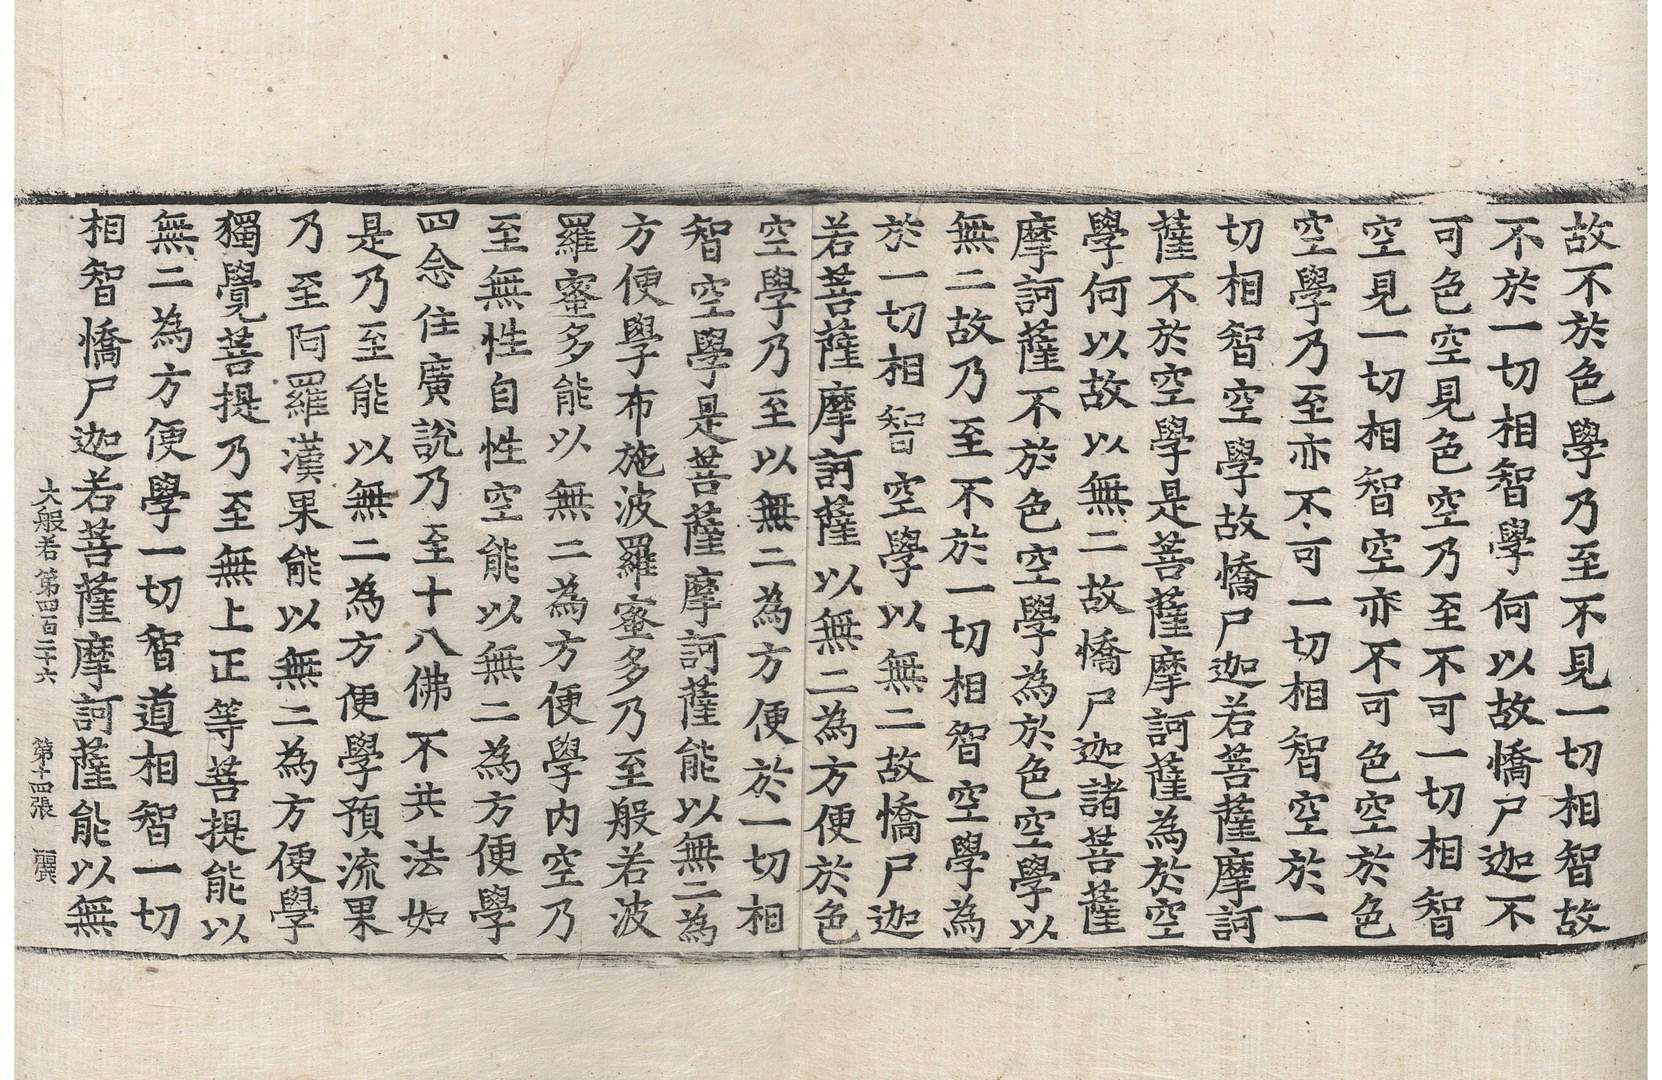 故不於色學乃至不見一切相智故
不於一切相智學何以故憍尸迦不
可色空見色空乃至不可一切相智
空見一切相智空亦不可色空於色
空學乃至亦不可一切相智空於一
切相智空學故憍尸迦若菩薩摩訶
薩不於空學是菩薩摩訶薩為於空
學何以故以無二故憍尸迦諸菩薩
摩訶薩不於色空學為於色空學以
無二故乃至不於一切相智空學為
於一切相智空學以無二故憍尸迦
若菩薩摩訶薩以無二為方便於色
空學乃至以無二為方便於一切相
智空學是菩薩摩訶薩能以無二為
方便學布施波羅蜜多乃至般若波
羅蜜多能以無二為方便學內空乃
至無性自性空能以無二為方便學
四念住廣說乃至十八佛不共法如
是乃至能以無二為方便學預流果
乃至阿羅漢果能以無二為方便學
獨覺菩提乃至無上正等菩提能以
無二為方便學一切智道相智一切
相智憍尸迦若菩薩摩訶薩能以無
大般若第四百二十六 第十四張 麗